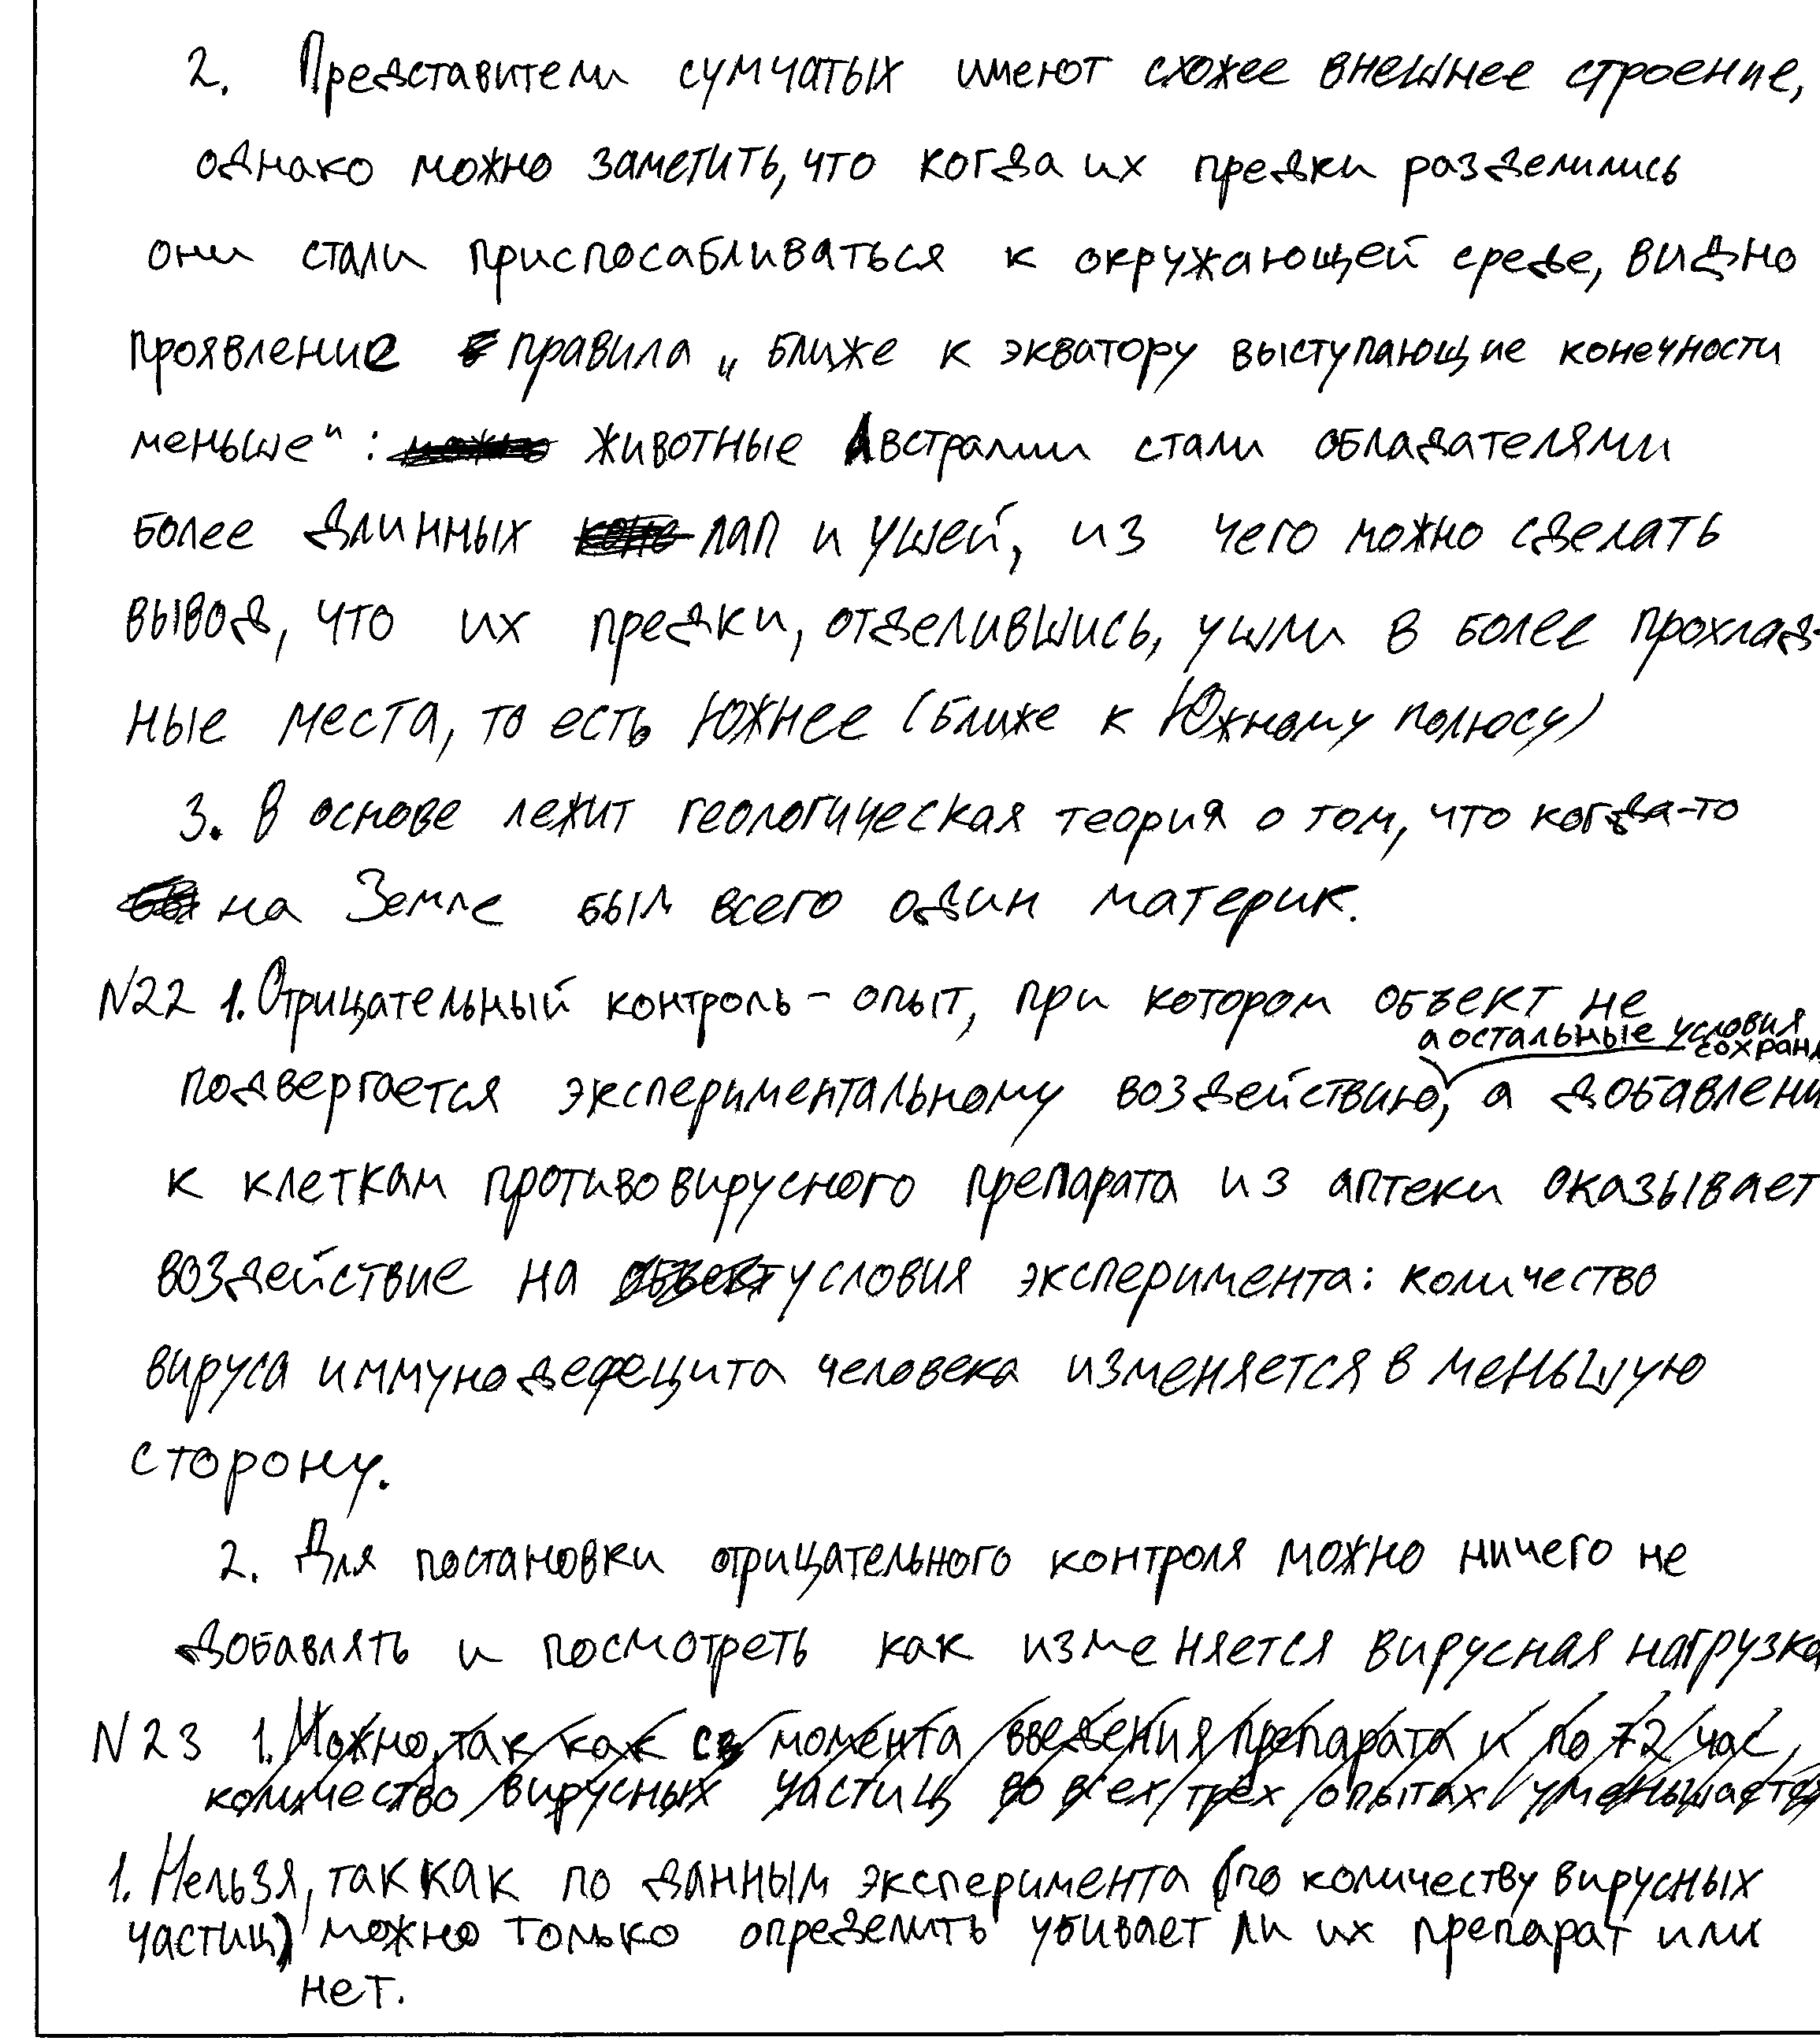 2. Представители сумчатых имеют схожее внешнее строение,
однако можно заметить, что когда их предки разделились
они стали приспосабливаться к окружающей среде, видно
проявление правила „ближе к экватору выступающие конечности
меньше“: можно животные Австралии стали обладателями
более длинных коне лап и ушей, из чего можно сделать
вывод, что их предки, отделившись, ушли в более прохлад-
ные места, то есть южнее (ближе к Южному полюсу)
3. В основе лежит геологическая теория о том, что когда-то
на Земле был всего один материк.
N22 1. Отрицательный контроль – опыт, при котором объект не
а остальные условия
сохран
подвергается экспериментальному воздействию, а добавлени
к клеткам противовирусного препарата из аптеки оказывает
воздействие на объект условия эксперимента: количество
вируса иммунодефецита человека изменяется в меньшую
сторону.
2. Для постановки отрицательного контроля можно ничего не
добавлять и посмотреть как изменяется вирусная нагрузка
N23 1. Можно, так как с момента введения препарата и по 72 час,
количество вирусных частиц во всех трёх опытах уменьшается
1. Нельзя, так как по данным эксперимента (по количеству вирусных
частиц) можно только определить убивает ли их препарат или
нет.